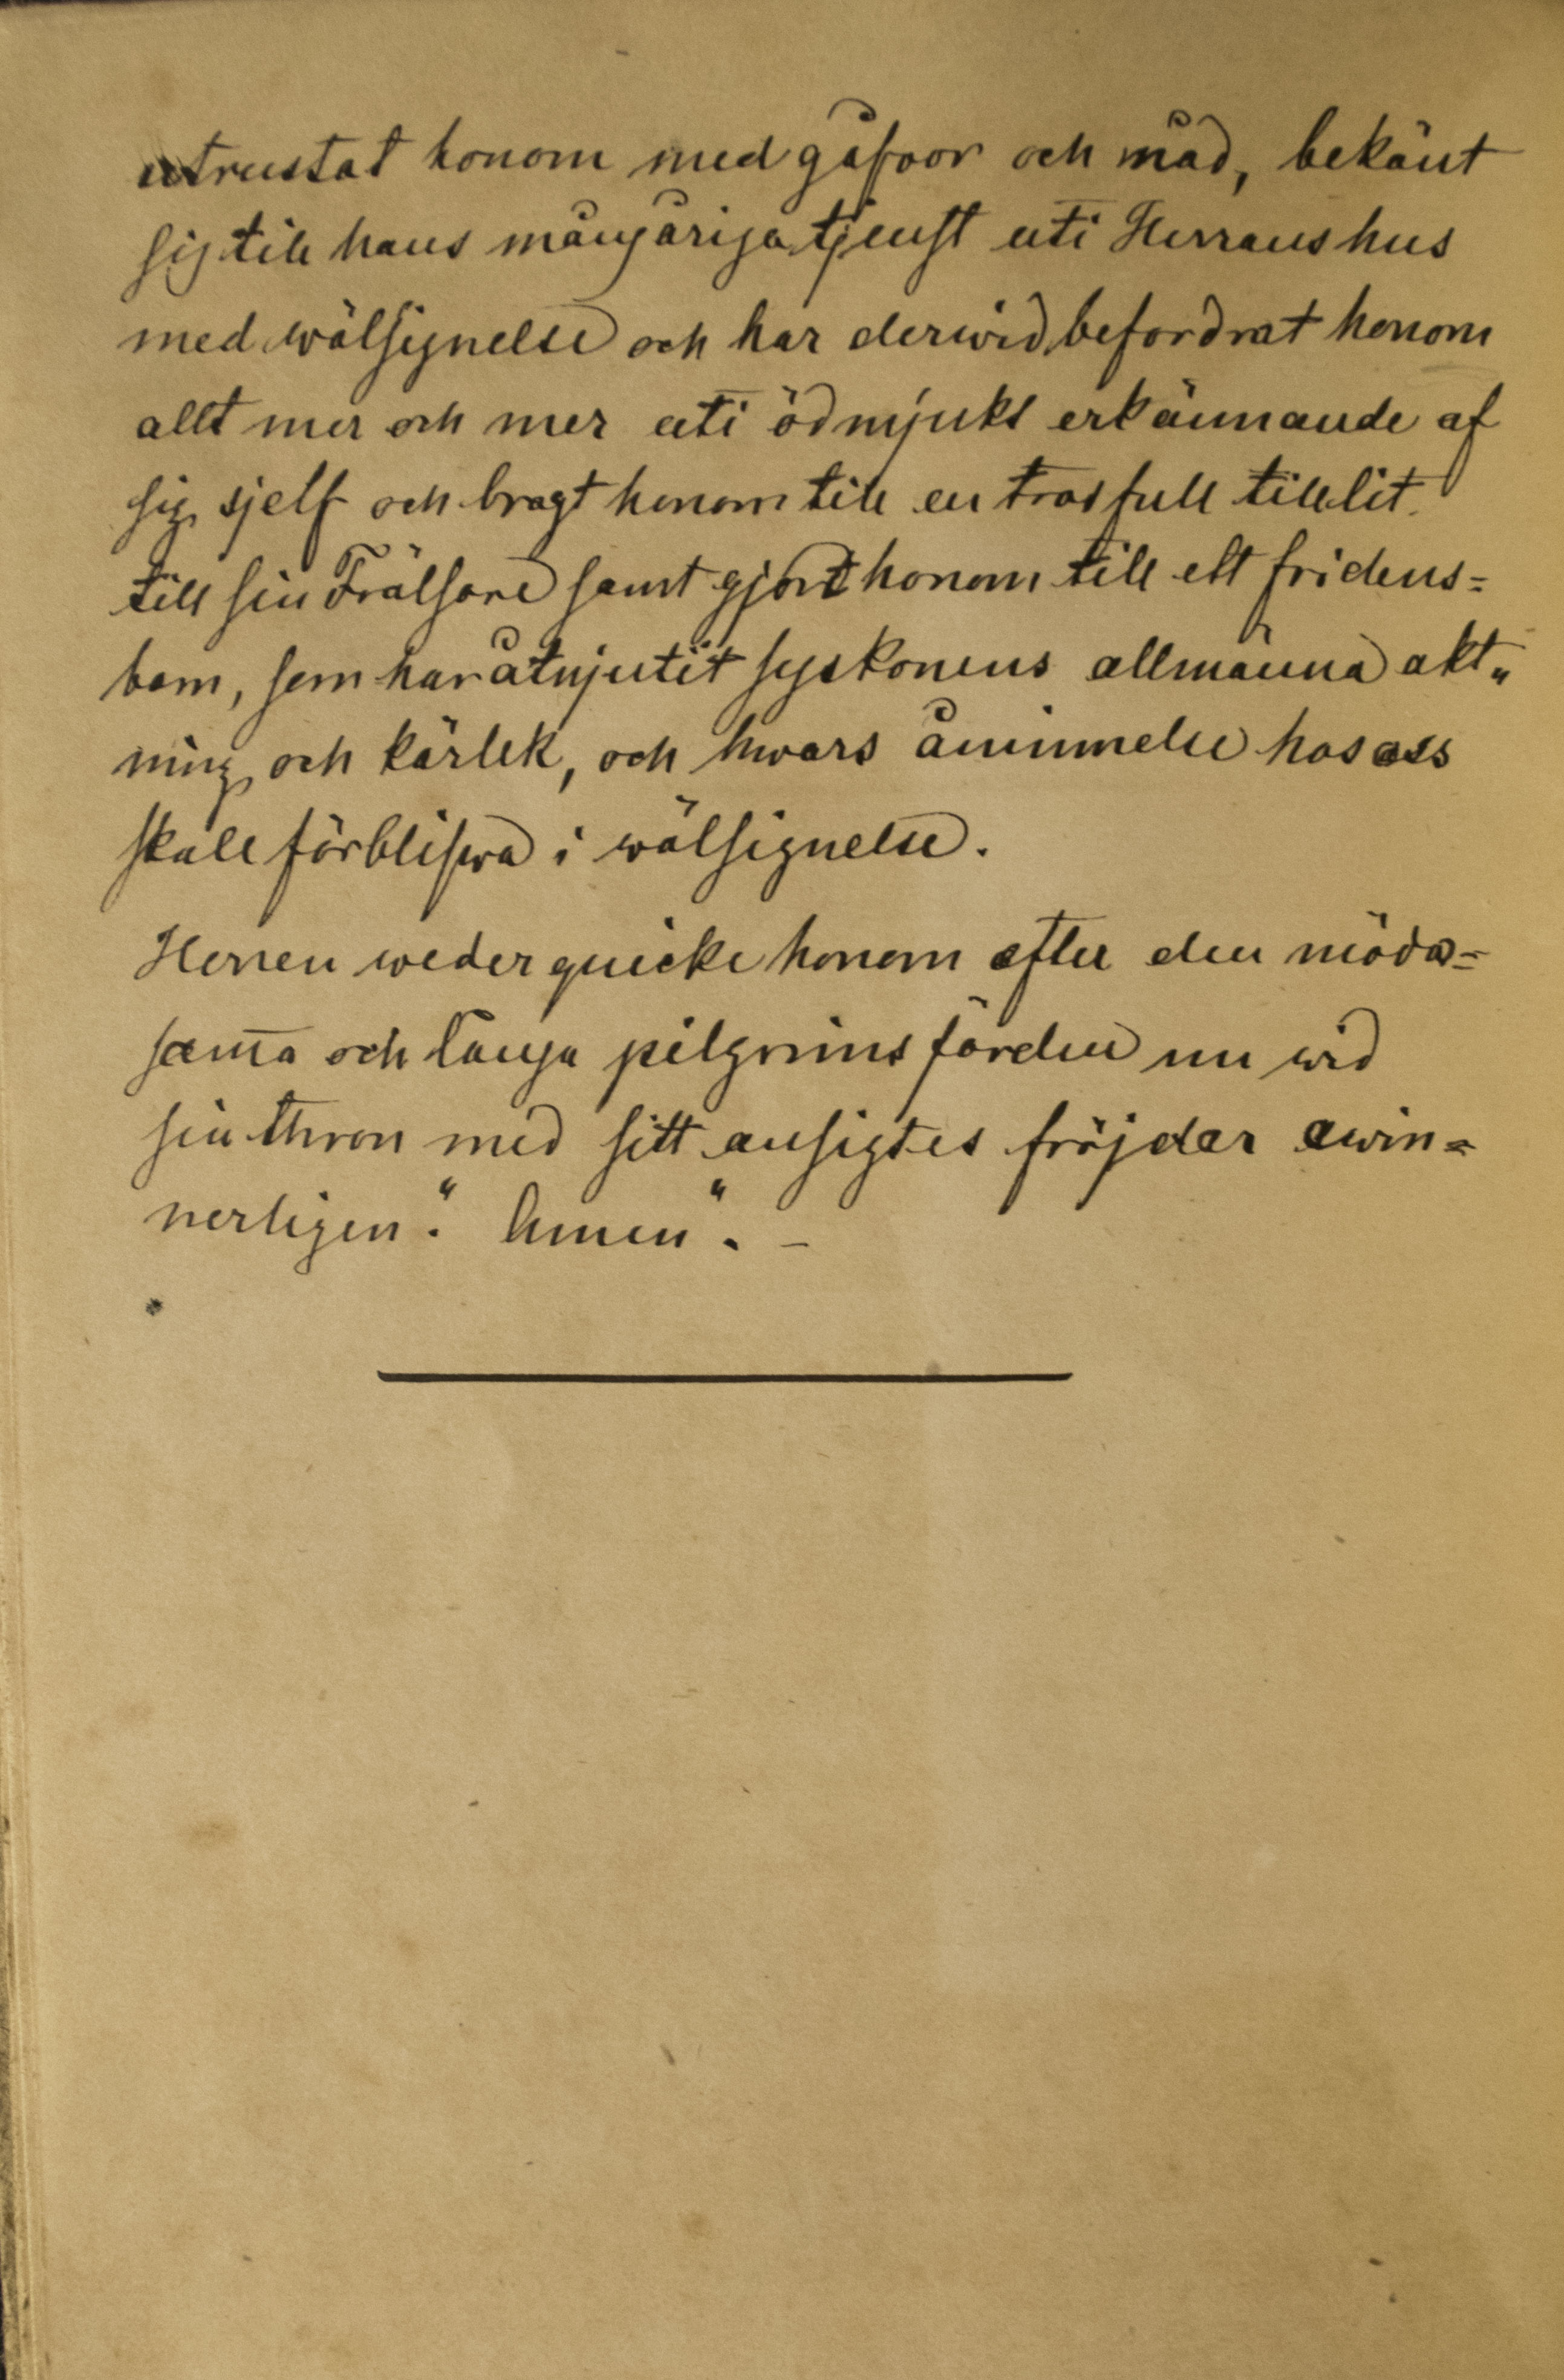 utrustat honom med gåfvor och nåd, bekänt
sig till hans mångåriga tjenst uti Herrans hus
med wälsignelse och har derwid befordrat honom
allt mer och mer uti ödmjukt erkännande af
sig sjelf och bragt honom till en trosfull tillit
till sin Frälsare samt gjort honom till ett fridens=
barn, som har åtnjutit syskonens allmänna akt„
ning och kärlek, och hwars åminnelse hos oss
skall förblifwa i wälsignelse.
Herren wederquicke honom efter den möda=
samma och långa pilgrimsfärden nu wid
sin thron med sitt ansigtes fröjder ewin=
nerligen“. Amen“. –